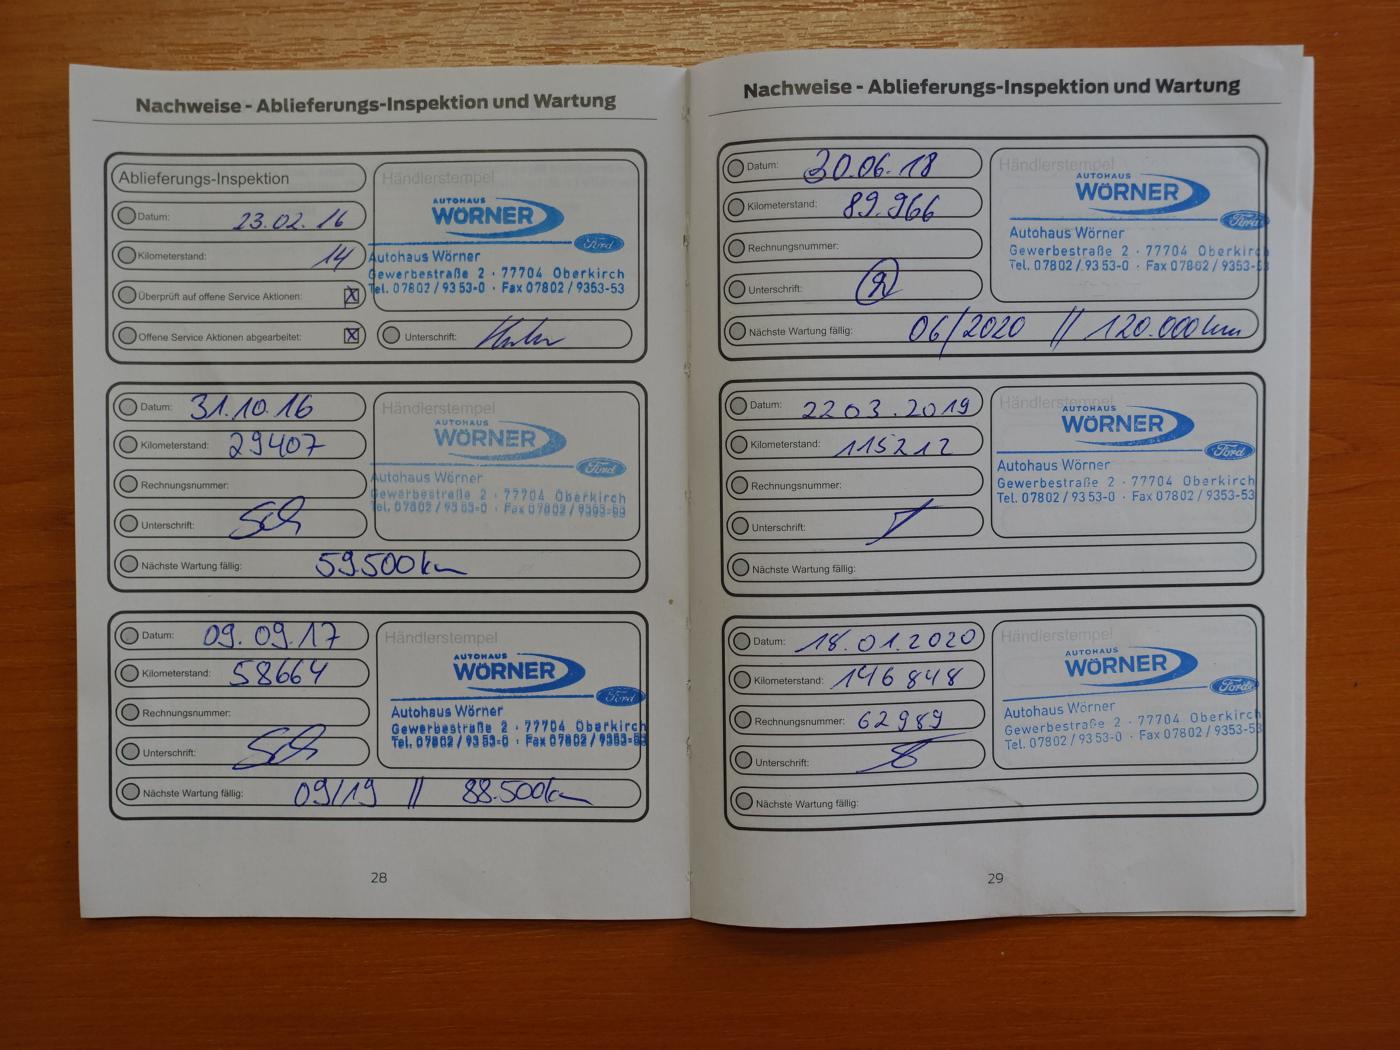 Nachweise - Ablieferungs-Inspektion und Wartung
Ablieferungs-Inspektion
Datum: 23.02.16
Kilometerstand: 14
Überprüft auf offene Service Aktionen: X
Offene Service Aktionen abgearbeitet: X
Händlerstempel
AUTOHAUS
WÖRNER
Ford
Autohaus Wörner
Gewerbestraße 2 · 77704 Oberkirch
Tel. 07802 / 93 53-0 · Fax 07802 / 9353-53
Unterschrift:
Datum: 31.10.16
Kilometerstand: 29407
Rechnungsnummer:
Unterschrift:
Händlerstempel
AUTOHAUS
WÖRNER
Ford
Autohaus Wörner
Gewerbestraße 2 · 77704 Oberkirch
Tel. 07802 / 93 53-0 · Fax 07802 / 9353-53
Nächste Wartung fällig: 59500km
Datum: 09.09.17
Kilometerstand: 58664
Rechnungsnummer:
Unterschrift:
Händlerstempel
AUTOHAUS
WÖRNER
Ford
Autohaus Wörner
Gewerbestraße 2 · 77704 Oberkirch
Tel. 07802 / 93 53-0 · Fax 07802 / 9353-53
Nächste Wartung fällig: 09/19 // 88.500km
28
Nachweise - Ablieferungs-Inspektion und Wartung
Datum: 30.06.18
Kilometerstand: 89.966
Rechnungsnummer:
Unterschrift:
Händlerstempel
AUTOHAUS
WÖRNER
Ford
Autohaus Wörner
Gewerbestraße 2 · 77704 Oberkirch
Tel. 07802 / 93 53-0 · Fax 07802 / 9353-53
Nächste Wartung fällig: 06/2020 // 120.000km
Datum: 22.03.2019
Kilometerstand: 115212
Rechnungsnummer:
Unterschrift:
Händlerstempel
AUTOHAUS
WÖRNER
Ford
Autohaus Wörner
Gewerbestraße 2 · 77704 Oberkirch
Tel. 07802 / 93 53-0 · Fax 07802 / 9353-53
Nächste Wartung fällig:
Datum: 18.01.2020
Kilometerstand: 146848
Rechnungsnummer: 62989
Unterschrift:
Händlerstempel
AUTOHAUS
WÖRNER
Ford
Autohaus Wörner
Gewerbestraße 2 · 77704 Oberkirch
Tel. 07802 / 93 53-0 · Fax 07802 / 9353-53
Nächste Wartung fällig:
29